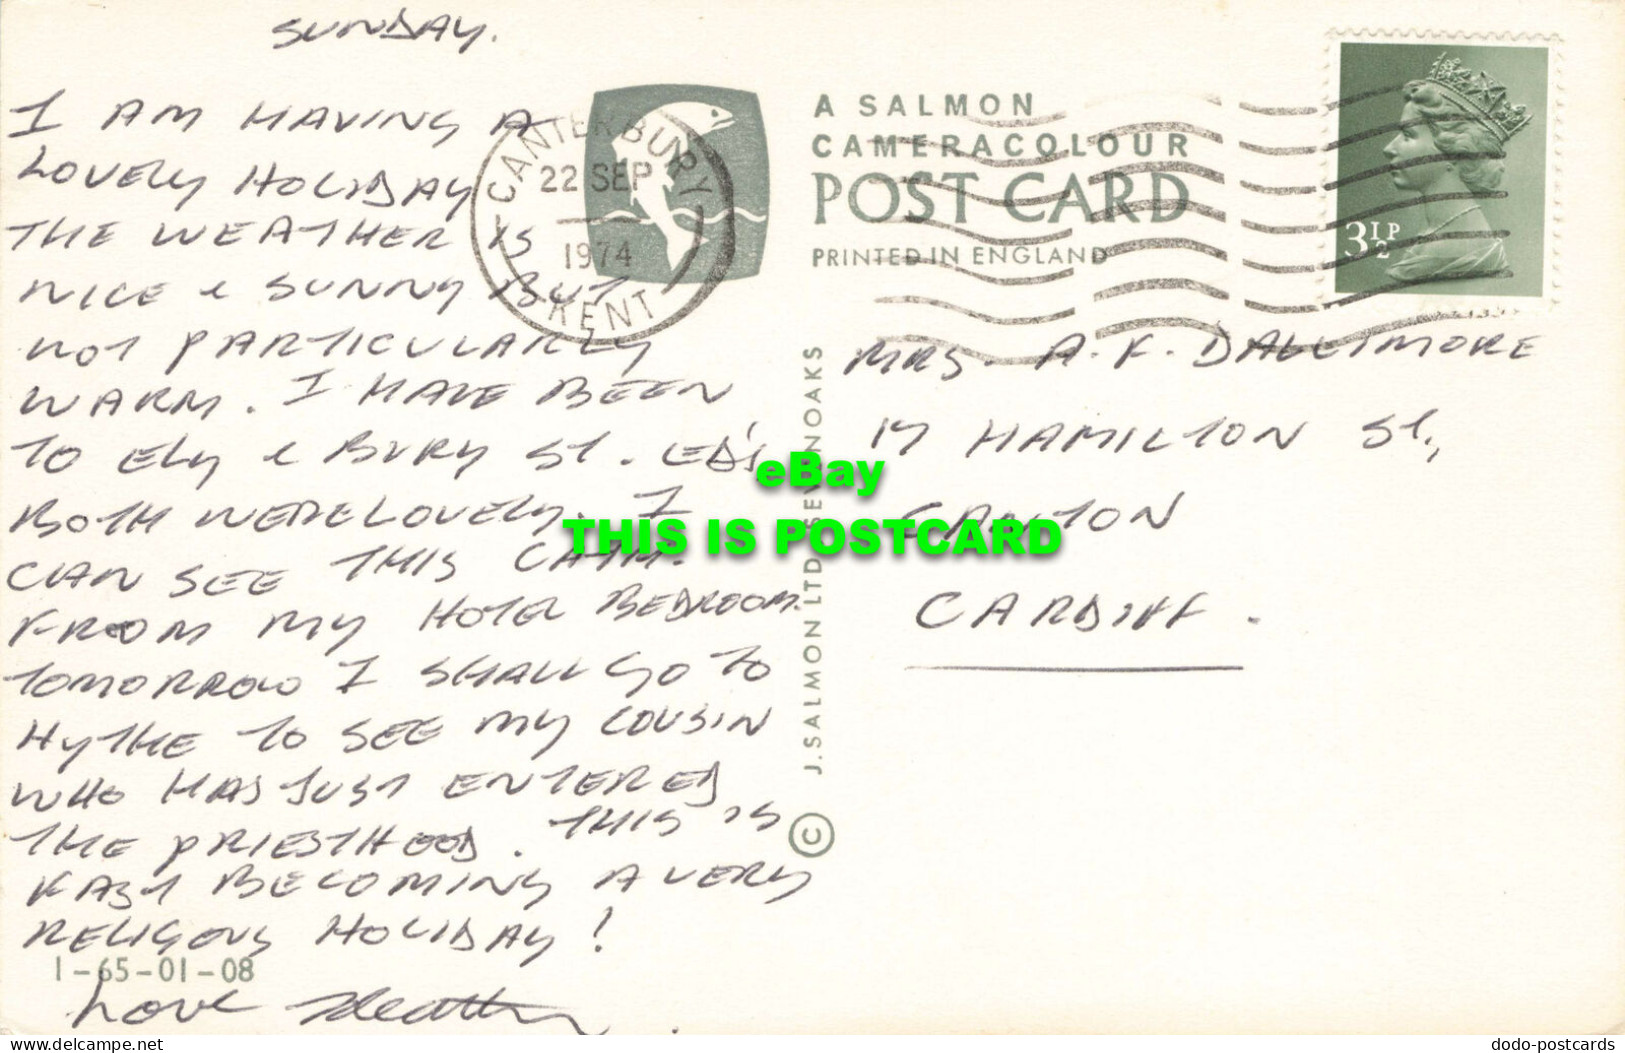 SUNDAY.
I AM HAVING A
LOVELY HOLIDAY
THE WEATHER IS
NICE & SUNNY BUT
NOT PARTICULARLY
WARM. I HAVE BEEN
TO ELY & BURY ST. ED'S
BOTH WERE LOVELY. I
CAN SEE THIS CATH.
FROM MY HOTEL BEDROOM.
TOMORROW I SHALL GO TO
HYTHE TO SEE MY COUSIN
WHO HAS JUST ENTERED
THE PRIESTHOOD. THIS IS
FAST BECOMING A VERY
RELIGOUS HOLIDAY!
1-65-01-08
Love Heather
CANTERBURY
22 SEP
1974
KENT
A SALMON
CAMERACOLOUR
POST CARD
PRINTED IN ENGLAND
3½P
© J. SALMON LTD SEVENOAKS
MRS. A. F. DALLIMORE
17 HAMILTON St.,
CANTON
CARDIFF.
eBay
THIS IS POSTCARD
delcampe.net
dodo-postcards